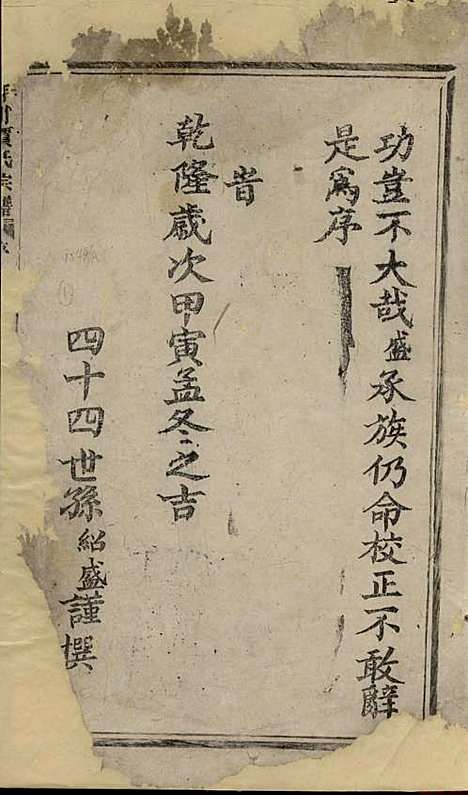 功豈不大哉盛承族仍命校正不敢辭
是爲序
旹
乾隆歲次甲寅孟冬之吉
四十四世孫紹盛謹撰
氏宗譜